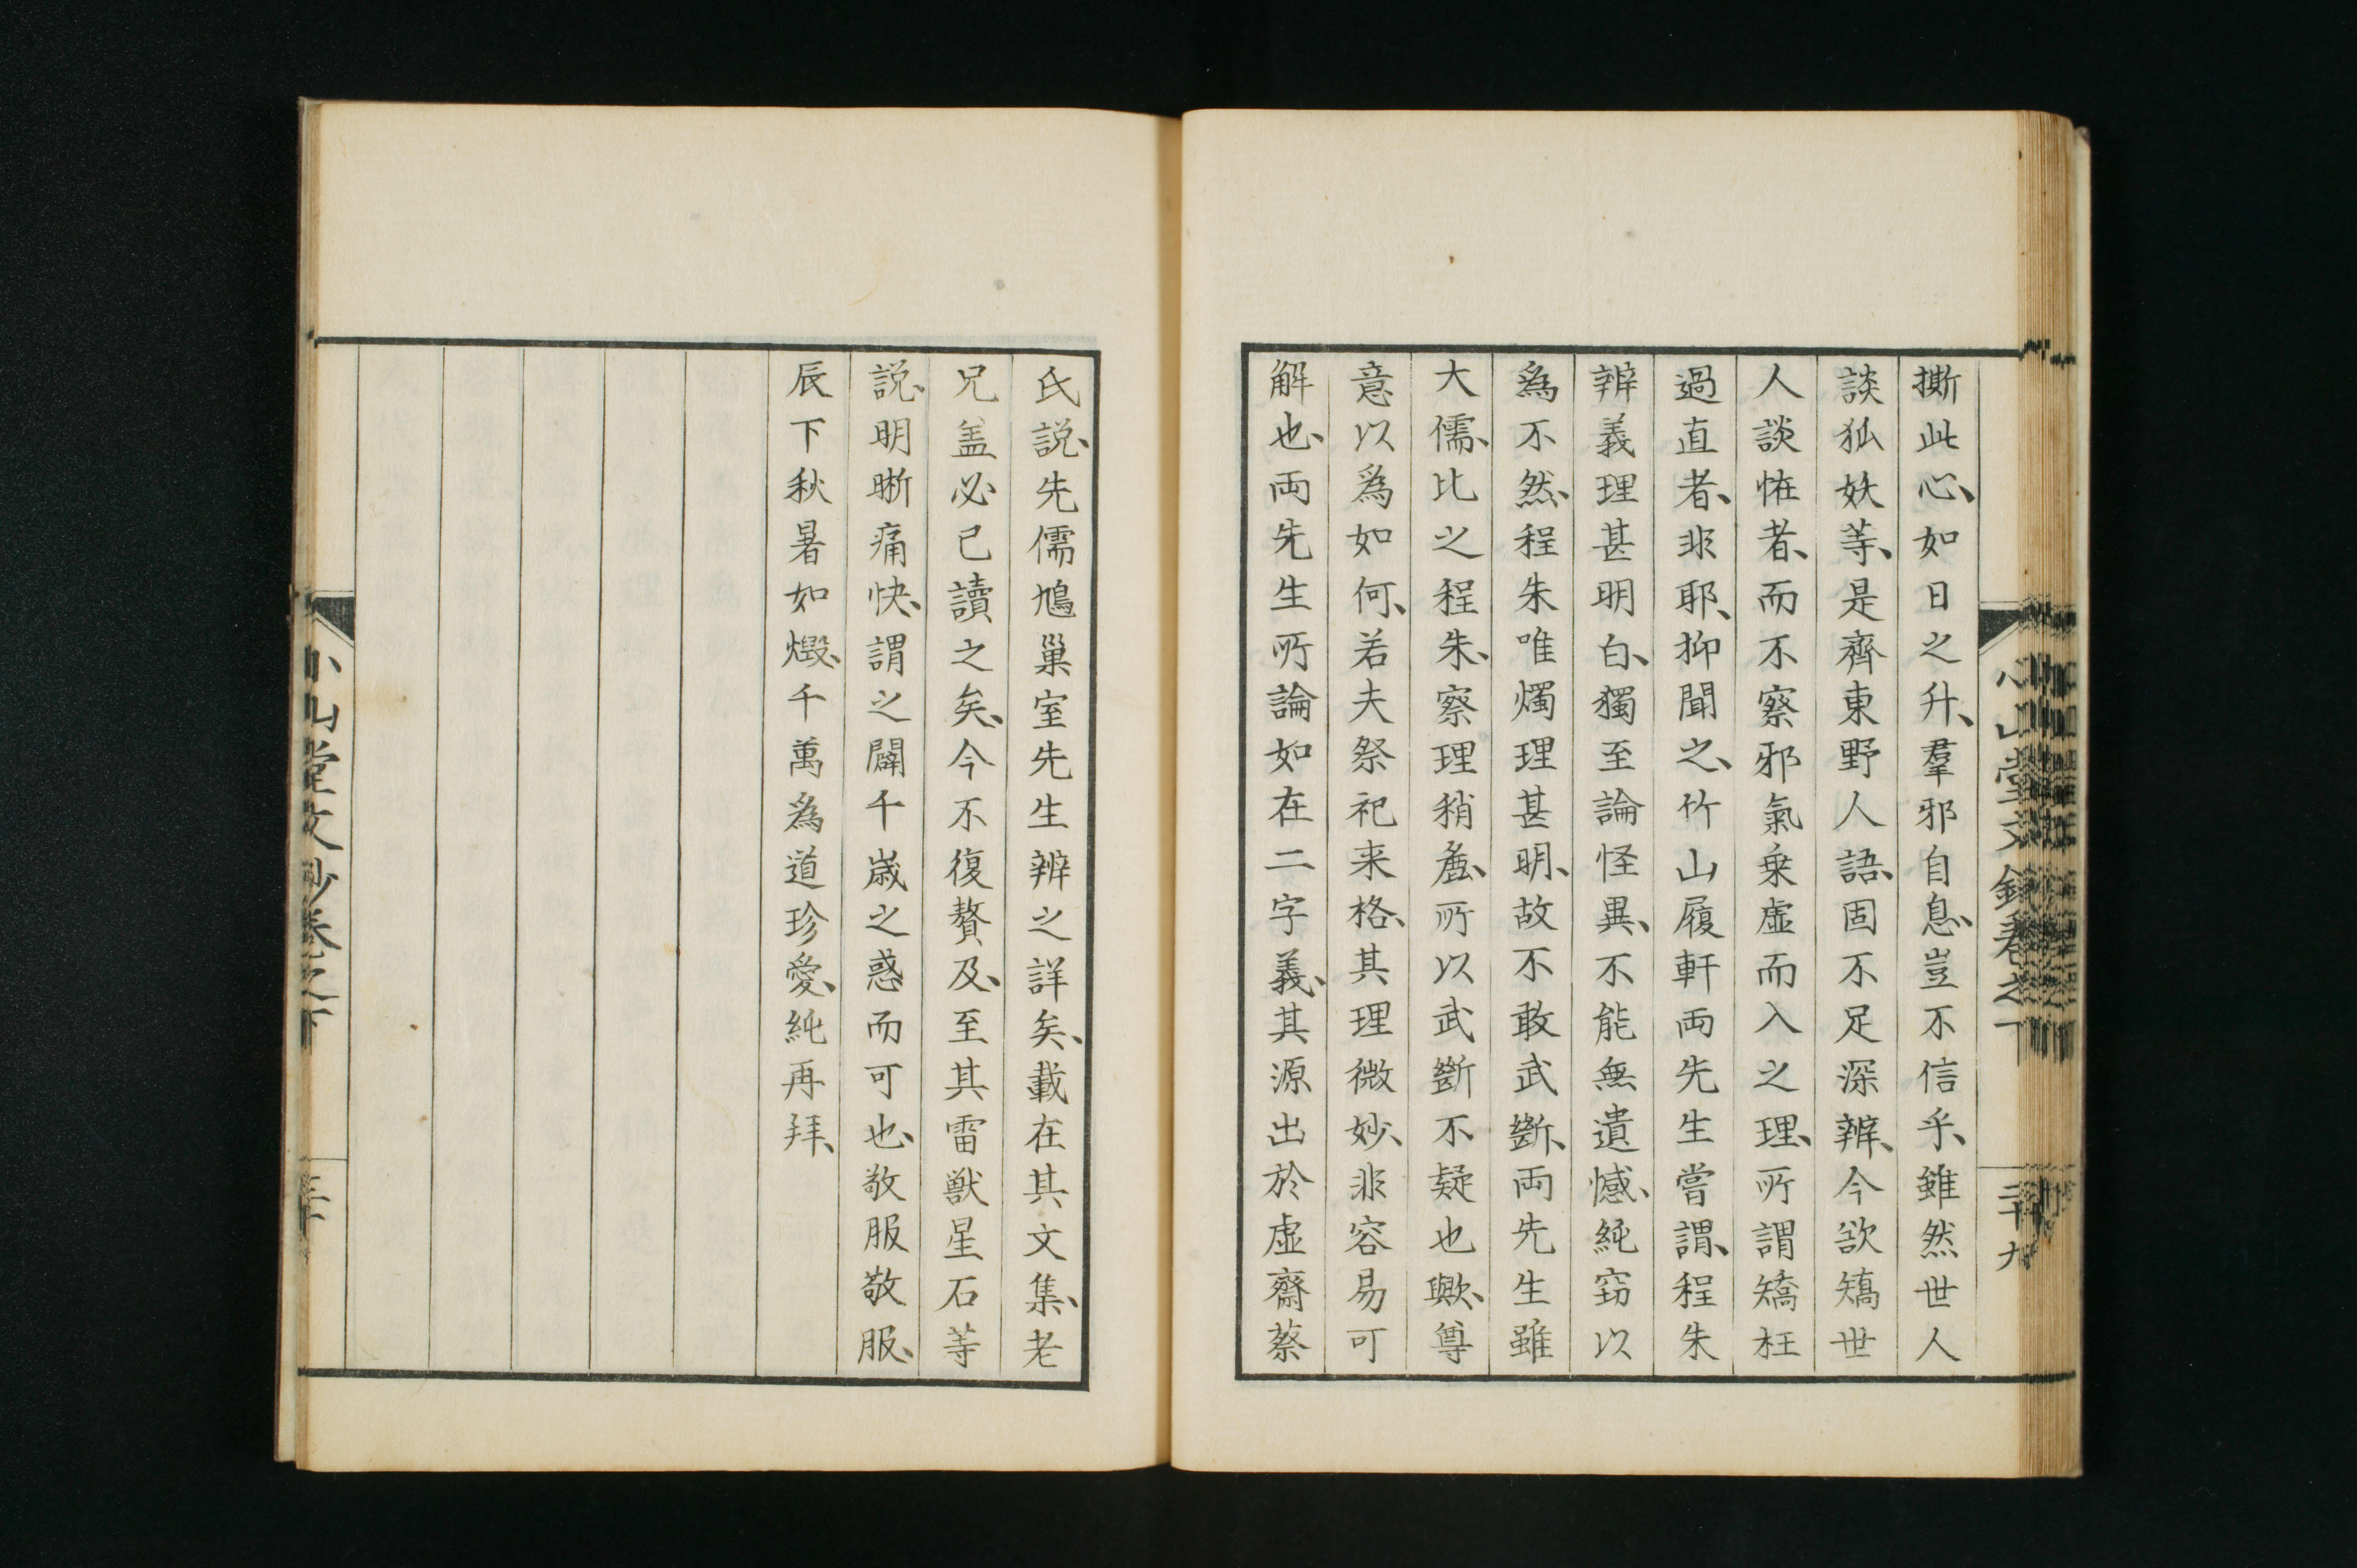 撕此心、如日之升、羣邪自息、豈不信乎、雖然世人
談狐妖等、是齊東野人語、固不足深辨、今欲矯世
人談恠者、而不察邪氣乗虛而入之理、所謂矯枉
過直者、非耶、抑聞之、竹山履軒両先生嘗謂、程朱
辨義理甚明白、獨至論怪異、不能無遺憾、純窃以
爲不然、程朱唯燭理甚明、故不敢武斷、両先生雖
大儒、比之程朱、察理稍麁、所以武斷不疑也歟、尊
意以爲如何、若夫祭祀来格、其理微妙、非容易可
解也、両先生所論如在二字義、其源出於虛齋蔡
小山堂文鈔卷之下
二十九
氏説、先儒鳩巢室先生辨之詳矣、載在其文集、老
兄盖必已讀之矣、今不復贅及、至其雷獸星石等
説、明晣痛快、謂之闢千歳之惑而可也、敬服敬服、
辰下秋暑如燬、千萬爲道珍愛、純再拜、
小山堂文鈔卷之下
三十